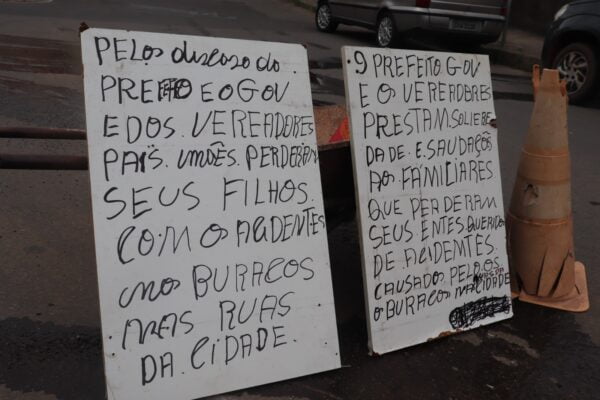 PELOS discaso do.
PREFEITO E O GOV
E DOS. VEREADORES
PAIS. UMÕES. PERDERAM
SEUS FILHOS.
COM O ACIDENTES
NOS BURACOS
NAS RUAS
DA. CIDADE.
9 PREFEITO GOV
E O VEREADORES
PRESTAM, SOLIERE
DADE. E. SAUDAÇÃS
AOS FAMILIARES
QUE PERDERAM
SEUS ENTES QUERIDO
DE ACIDENTES.
CAUSADOS PELO OS.
O BURACOS NA CIDADE